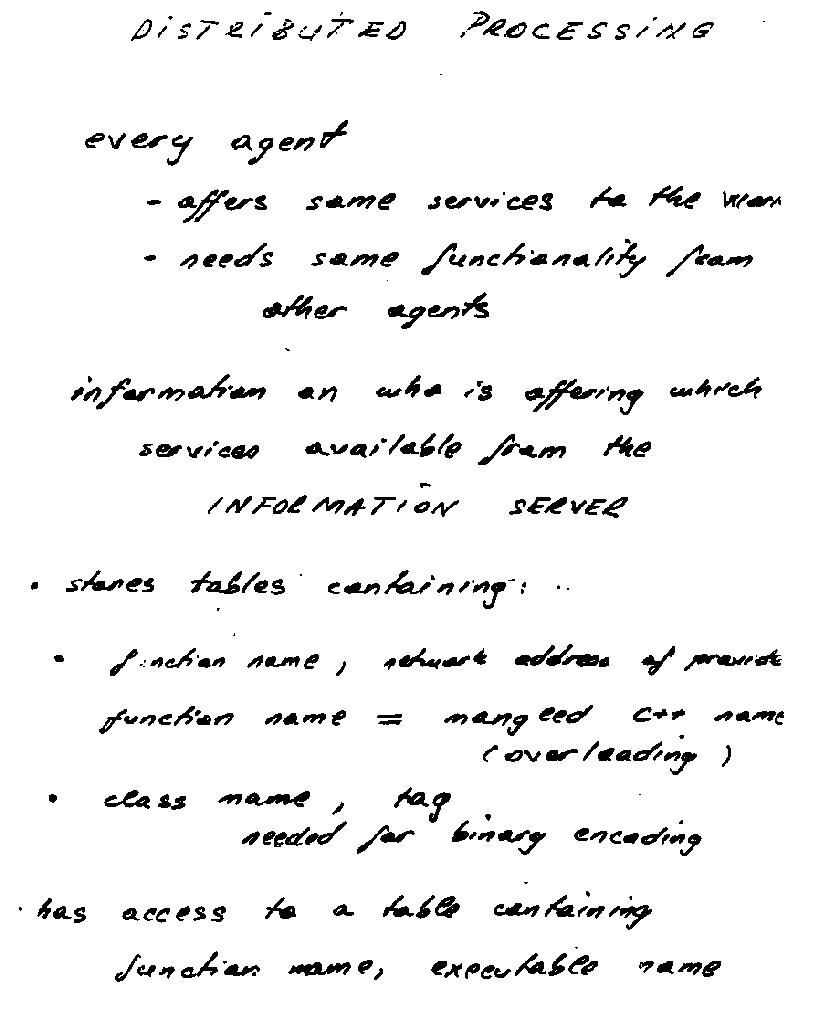 DISTRIBUTED PROCESSING
every agent
- offers some services to the
- needs some functionality from
other agents
information on who is offering which
services available from the
INFORMATION SERVER
• stores tables containing:
• function name, network address of provide
function name = mangeed C++ name
(overloading)
• class name, tag
needed for binary encoding
· has access to a table containing
function name, executable name